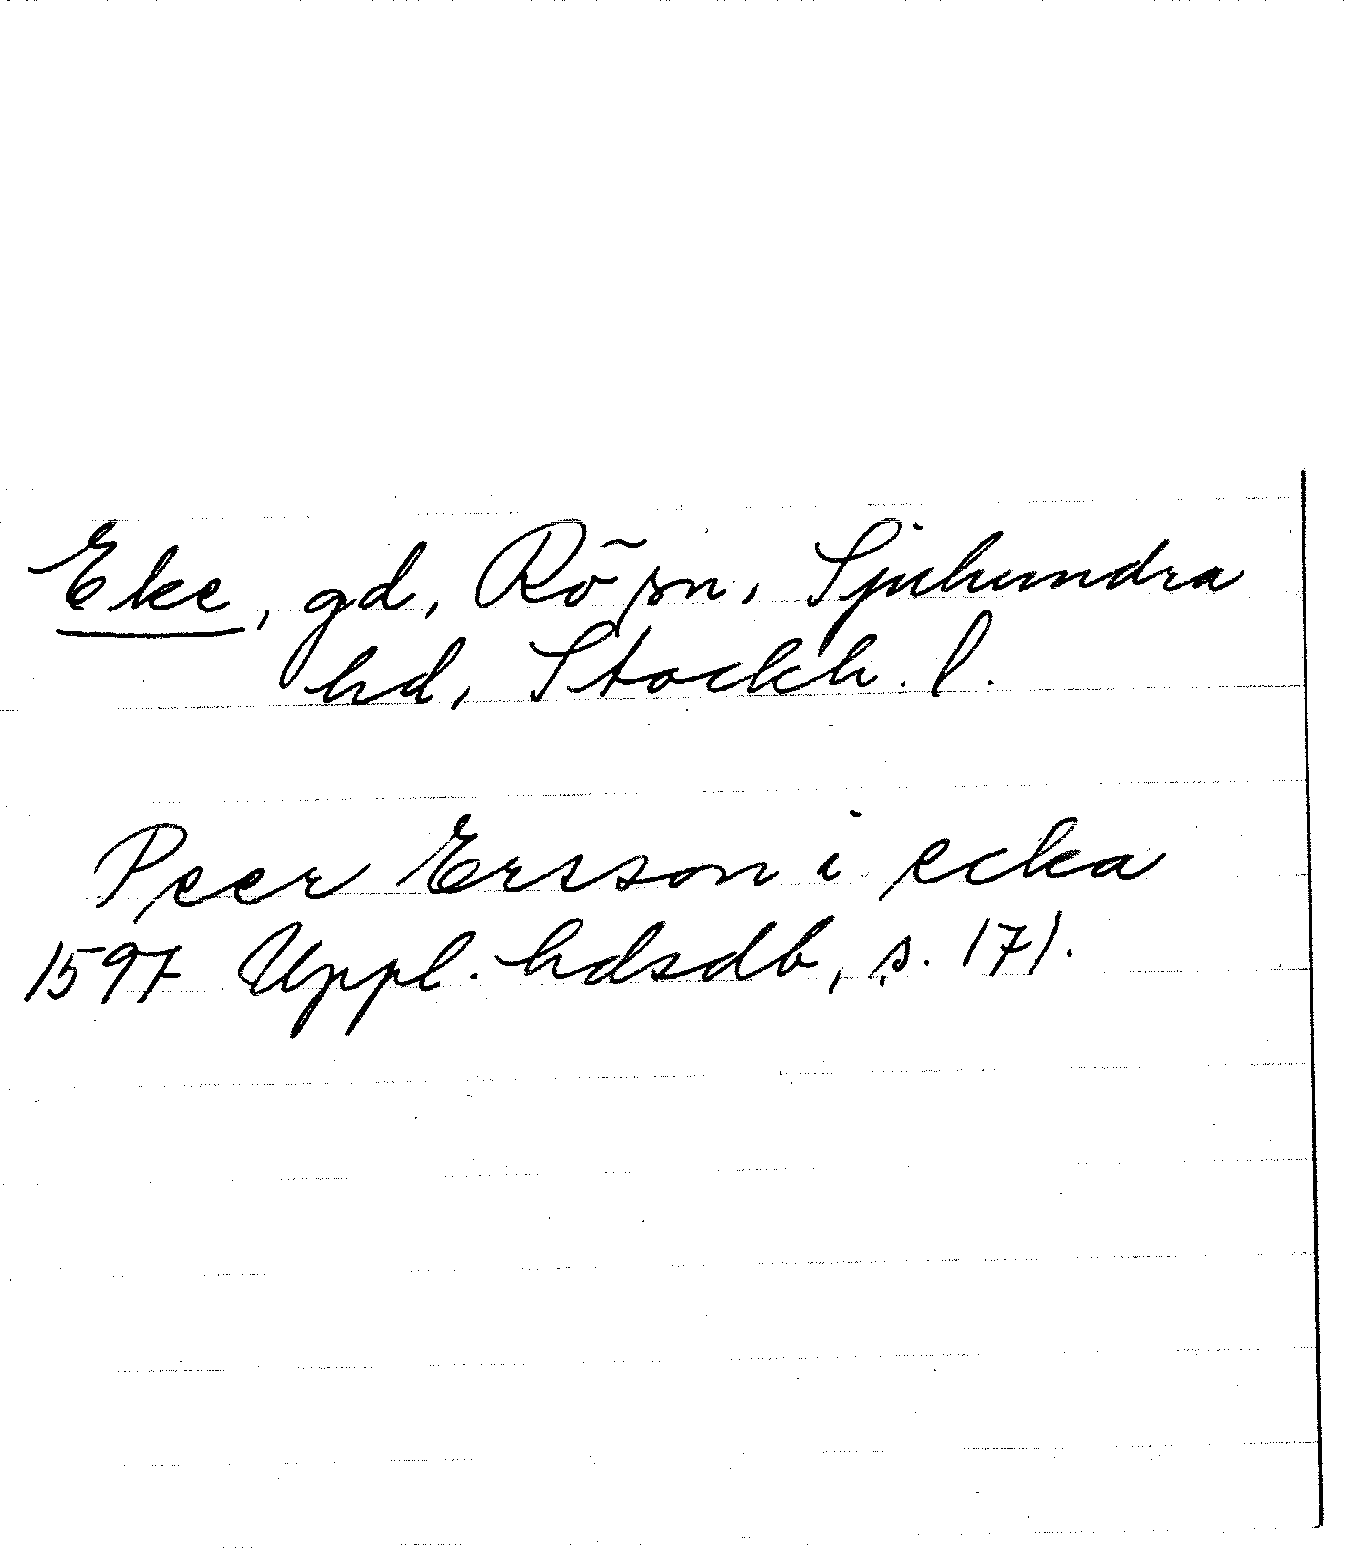 Eke, gd, Rö sn, Sjuhundra
hd, Stockh. l.
Peer Ersson i ecka
1597 Uppl. hdsdb, s. 171.